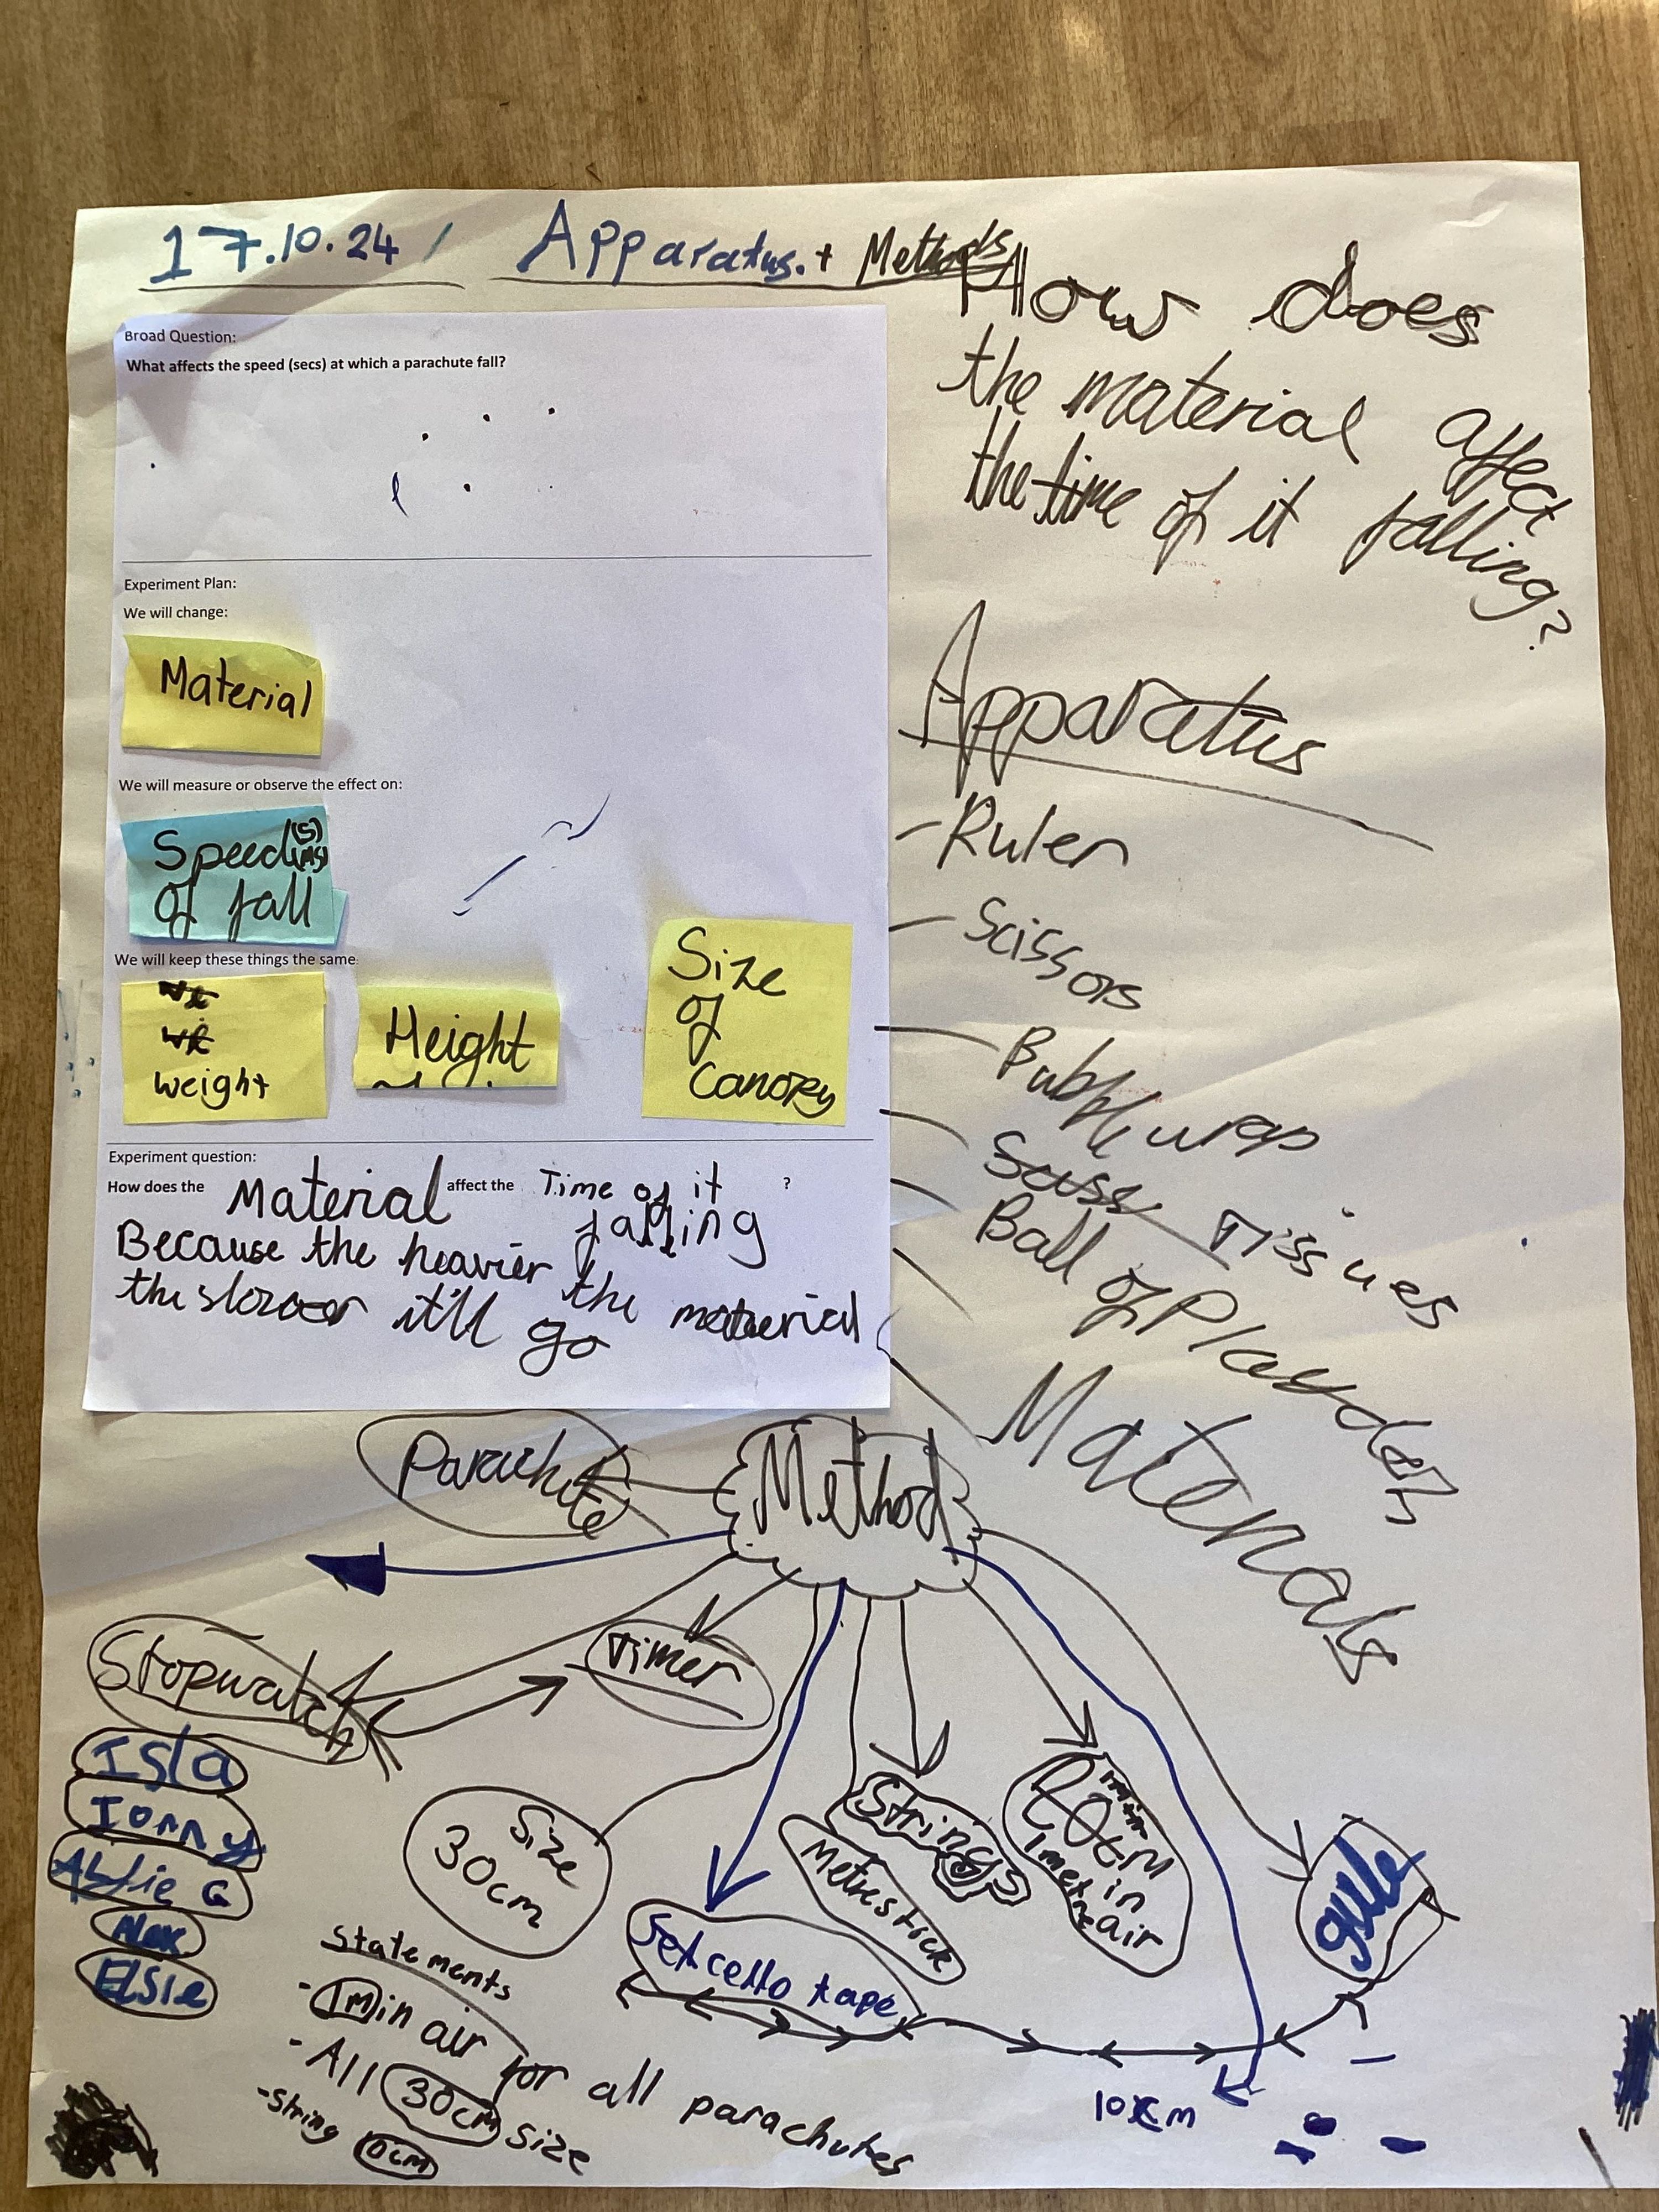 17.10.24 / Apparatus. + Methods
Broad Question:
What affects the speed (secs) at which a parachute fall?
Experiment Plan:
We will change:
Material
We will measure or observe the effect on:
Speed (s)
(ms)
of fall
We will keep these things the same:
weight
Height
Size
of
Canopy
Experiment question:
How does the Material affect the Time of it ?
falling
Because the heavier the material
the slower it'll go
How does
the material affect
the time of it falling?
Apparatus
- Ruler
- Scissors
- Bubble wrap
- Tissues
- Ball of
- Materials
Method
Parachute
Stopwatch
Timer
Size
30cm
Strings
Metre stick
1 metre
in
air
glue
Sellcello tape
10cm
Isla
Ionny
Alfie G
Alex
Elsie
Statements
- 1M in air for all parachutes
- All 30cm size
- String 10cm